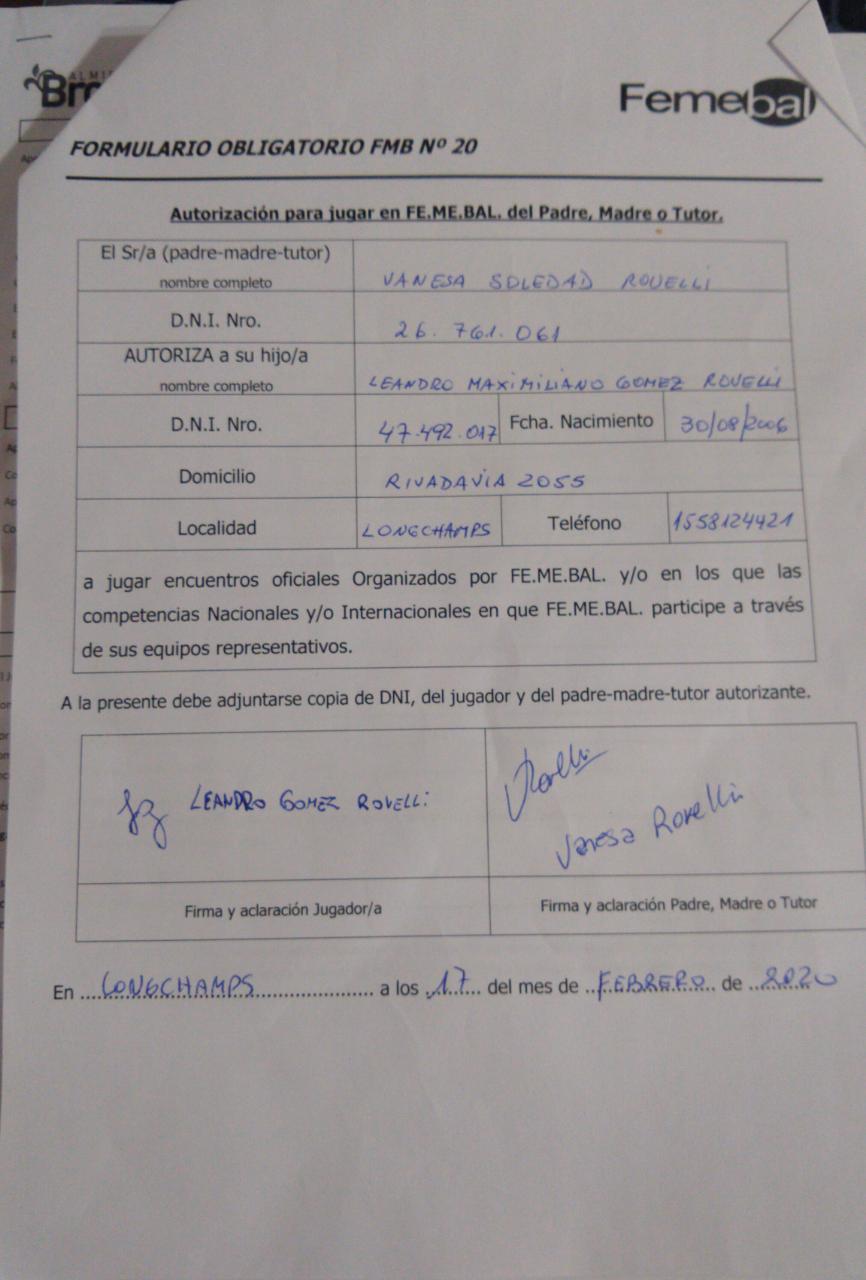 ALMI
Bro
Femebal
FORMULARIO OBLIGATORIO FMB Nº 20
Autorización para jugar en FE.ME.BAL. del Padre, Madre o Tutor.
El Sr/a (padre-madre-tutor)
nombre completo
VANESA SOLEDAD ROVELLI
D.N.I. Nro.
26.761.061
AUTORIZA a su hijo/a
nombre completo
LEANDRO MAXIMILIANO GOMEZ ROVELLI
D.N.I. Nro.
47.492.017
Fcha. Nacimiento
30/08/2006
Domicilio
RIVADAVIA 2055
Localidad
LONGCHAMPS
Teléfono
1558124421
a jugar encuentros oficiales Organizados por FE.ME.BAL. y/o en los que las
competencias Nacionales y/o Internacionales en que FE.ME.BAL. participe a través
de sus equipos representativos.
A la presente debe adjuntarse copia de DNI, del jugador y del padre-madre-tutor autorizante.
LEANDRO GOMEZ ROVELLI
VRovelli
Vanesa Rovelli
Firma y aclaración Jugador/a
Firma y aclaración Padre, Madre o Tutor
En LONGCHAMPS a los 17 del mes de FEBRERO de 2020